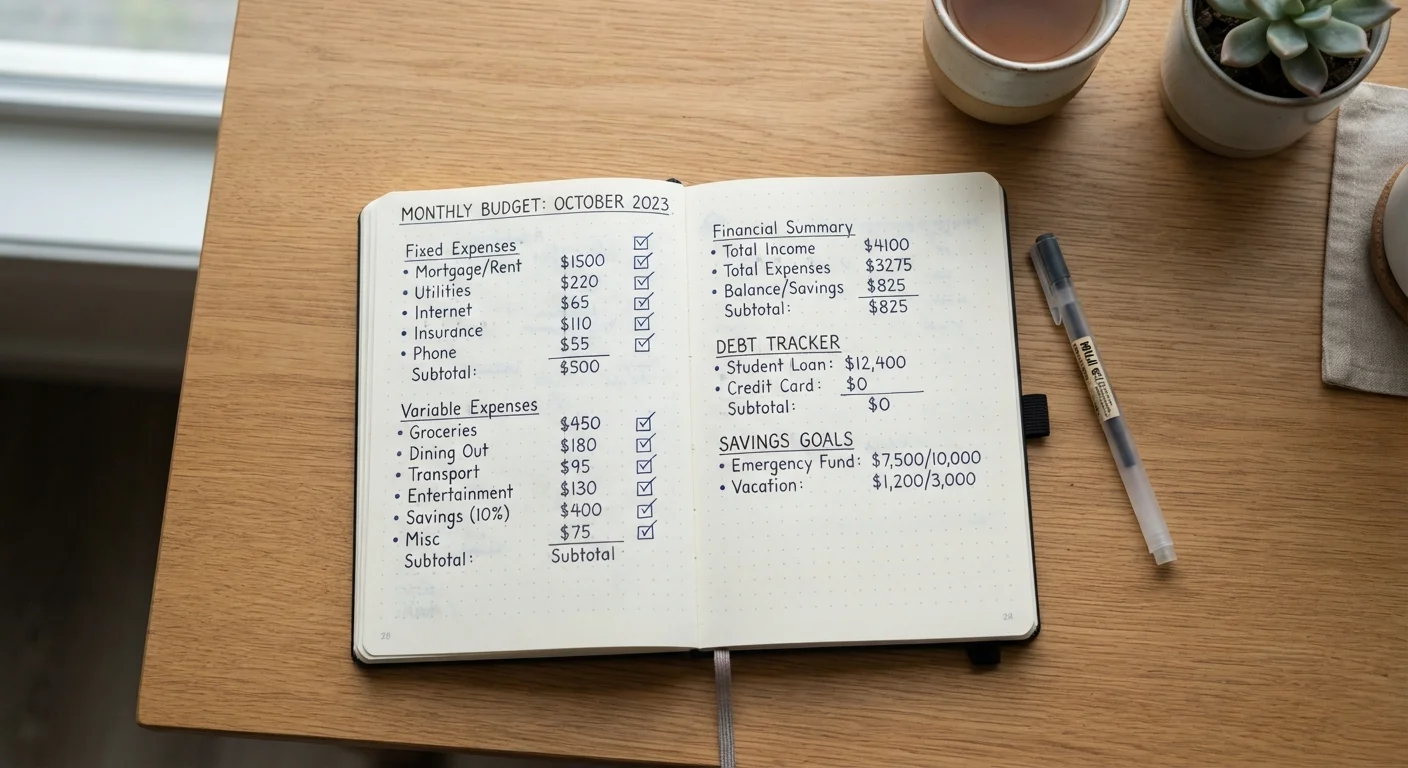 MONTHLY BUDGET: OCTOBER 2023
Fixed Expenses
• Mortgage/Rent $1500
• Utilities $220
• Internet $65
• Insurance $110
• Phone $55
Subtotal: $500
Variable Expenses
• Groceries $450
• Dining Out $180
• Transport $95
• Entertainment $130
• Savings (10%) $400
• Misc $75
Subtotal: Subtotal
Financial Summary
• Total Income $4100
• Total Expenses $3275
• Balance/Savings $825
Subtotal: $825
DEBT TRACKER
• Student Loan: $12,400
• Credit Card: $0
Subtotal: $0
SAVINGS GOALS
• Emergency Fund: $7,500/10,000
• Vacation: $1,200/3,000